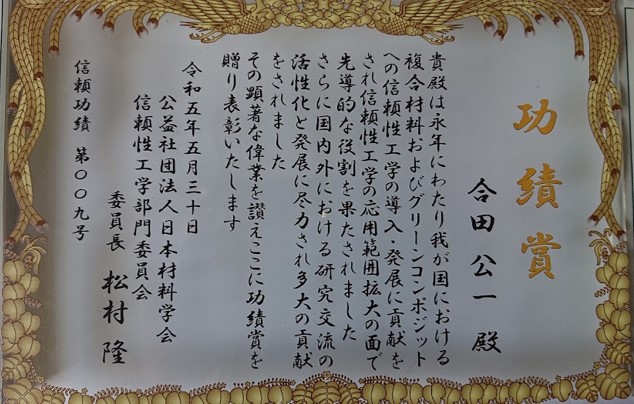 功績賞
合田公一 殿
貴殿は永年にわたり我が国における
複合材料およびグリーンコンポジット
への信頼性工学の導入・発展に貢献を
され信頼性工学の応用範囲拡大の面で
先導的な役割を果たされました
さらに国内外における研究交流の
活性化と発展に尽力され多大の貢献
をされました
その顕著な偉業を讃えここに功績賞を
贈り表彰いたします
令和五年五月三十日
公益社団法人日本材料学会
信頼性工学部門委員会
委員長 松村 隆
信頼功績 第〇〇九号